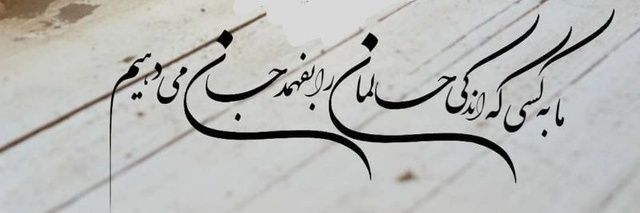 ما به کسی که اندکی حالمان را بفهمد جان می دهیم